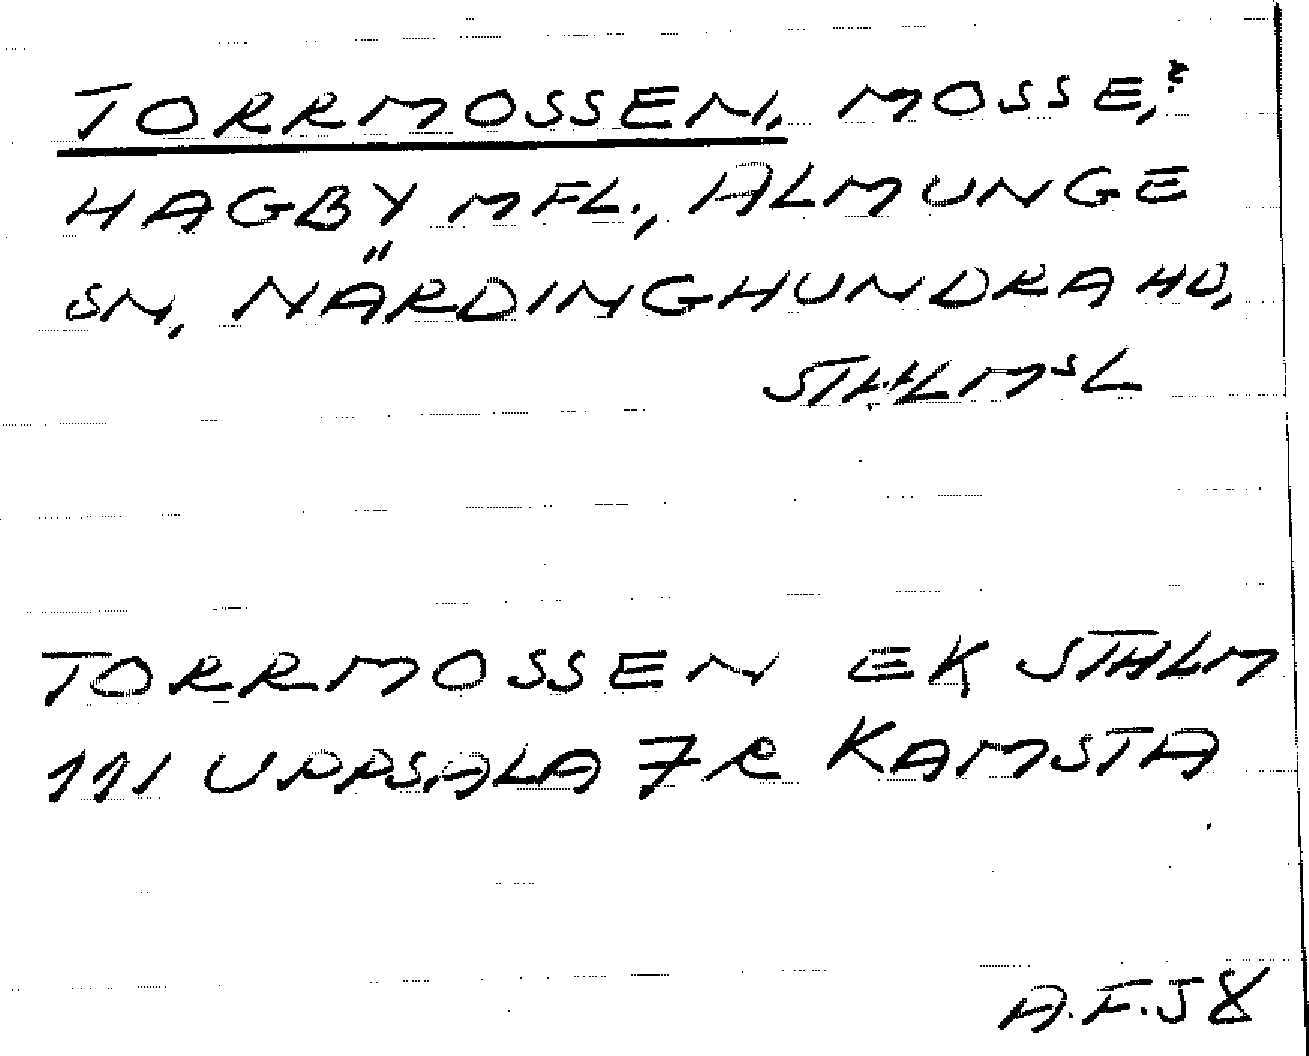 TORRMOSSEN, MOSSE,?
HAGBY MFL., ALMUNGE
SN, NÄRDINGHUNDRA HD,
STHLMSL
TORRMOSSEN EK STHLM
111 UPPSALA 7R KAMSTA
A.F.58